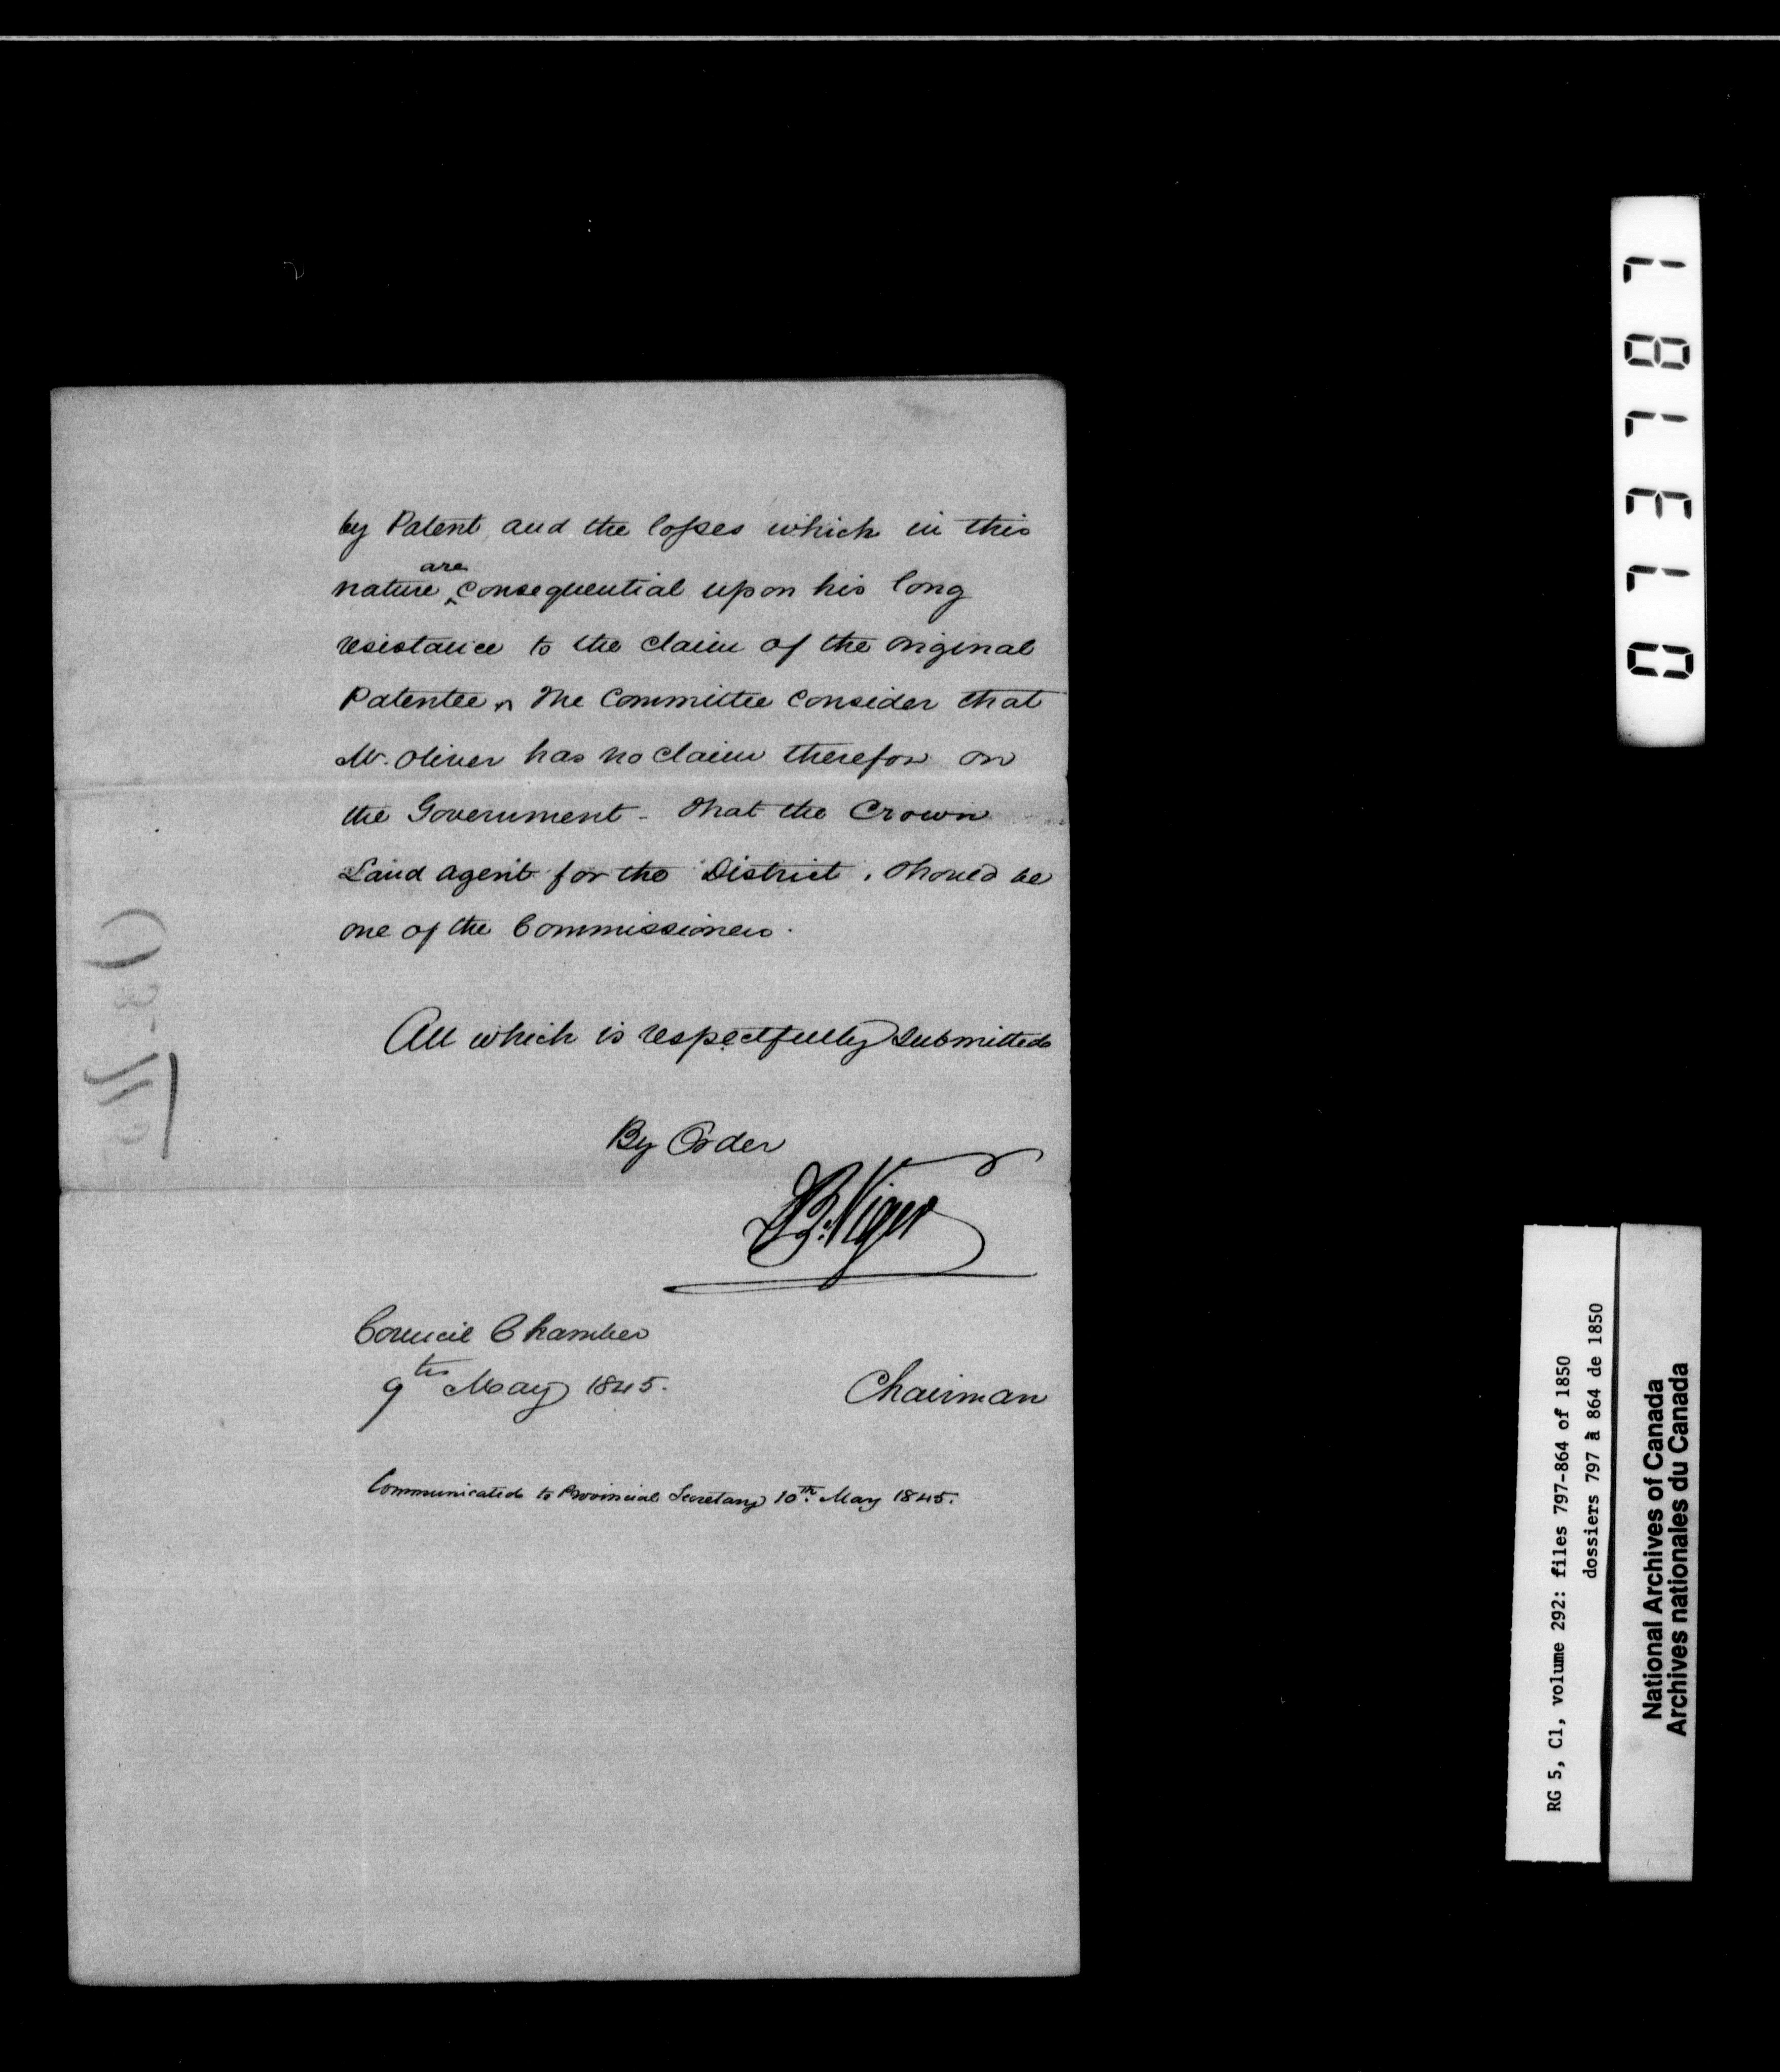 by Patent, and the losses which in this
nature are consequential upon his long
resistance to the claim of the original
Patentee, The Committee consider that
Mr. Oliver has no claim therefor on
the Government - That the Crown
Land agent for the District, should be
one of the Commissioners.
All which is respectfully submitted
By Order
D.B. Viger
Council Chamber
9th May 1845.
Chairman
Communicated to Provincial Secretary 10th. May 1845.
0173787
RG 5, C1, volume 292: files 797-864 of 1850
dossiers 797 à 864 de 1850
National Archives of Canada
Archives nationales du Canada